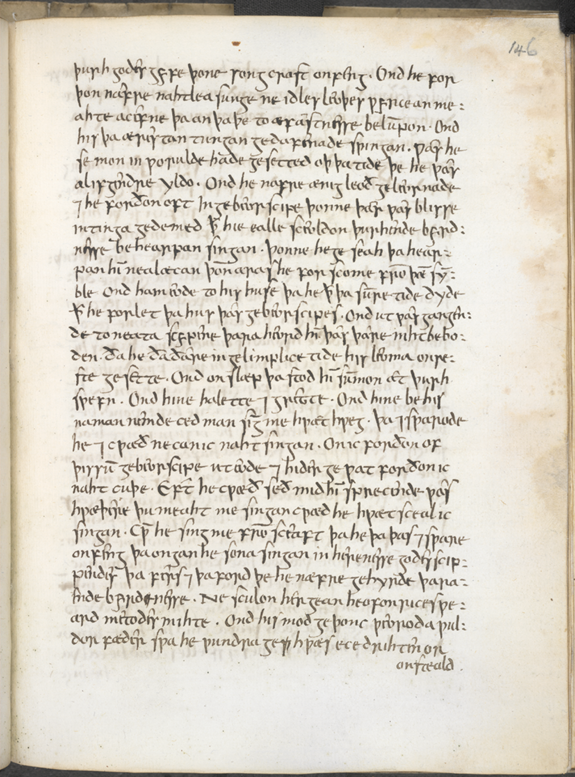 146
þurh godes gefe þone songcræft onfeng · Ond he for
þon næfre naht leasunge ne idles leoþes ƿyrcean me:
ahte ac efne þa an þa þe to æfæstnesse belumpon · Ond
his þa æfæstan tungan gedafenade singan · ƿæs he
se mon in ƿorulde hade geseted oþ þa tide þe he ƿæs
gelyfedre yldo · Ond he næfre ænig leoð geleornade
⁊ he fordon oft in gebeorscipe þonne þær ƿæs blisse
intinga gedemed ꝥ hie ealle sceoldon þurh ende byrd:
nesse be hearpan singan · þonne he ge seah þa hear:
pan him nealæcan þonne aras he for scome from þæm sy:
ble Ond ham eode to his huse þa he ꝥ þa sumre tide dyde
ꝥ he forlet þa hus þæs gebeorscipes · Ond ut ƿæs gangen:
de to neata scypene þara heord him ƿæs þære nihte bebo:
den · ða he ða ðære in gelimplice tide his leoma on re:
ste gesette · Ond onslæp þa stod him sum mon æt þurh
sƿefn · Ond hine halette ⁊ grette · Ond hine be his
naman nemde cedman sing me hƿæt hƿeg · þa ⁊sƿarode
he ⁊ cƿæð ne can ic naht singan · On ic fordon of
þissum gebeorscipe ut eode ⁊ hider ge ƿat fordon ic
naht cuþe · Eft he cƿæð se ð mid him sprecende ƿæs
hƿæþere þu meaht me singan cƿæð he hƿæt sceal ic
singan · Cƿæð he sing me frumsceaft þa he þa þas ⁊sƿare
onfeng þa ongan he sona singan in herenesse godes scyp:
pendes þa fers ⁊ þa ƿord þe he næfre gehyrde þara
ende byrdnesse · Ne sculon hergean heofonrices ƿe:
ard metodes mihte · Ond his modgeþonc ƿeoroda ƿul:
dor fæder sƿa he ƿundra gehƿæs ece drihten or
onsteald